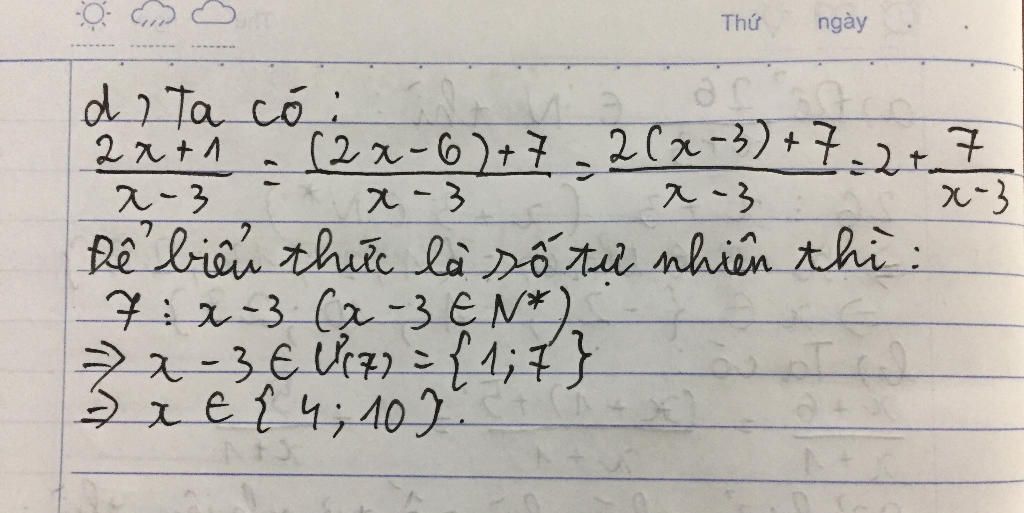 Thứ ngày
d) Ta có:
\frac{2x+1}{x-3} = \frac{(2x-6)+7}{x-3} = \frac{2(x-3)+7}{x-3} = 2 + \frac{7}{x-3}
Để biểu thức là số tự nhiên thì:
7 ⋮ x-3 (x-3 ∈ N*)
⇒ x-3 ∈ Ư(7) = {1; 7}
⇒ x ∈ {4; 10}.